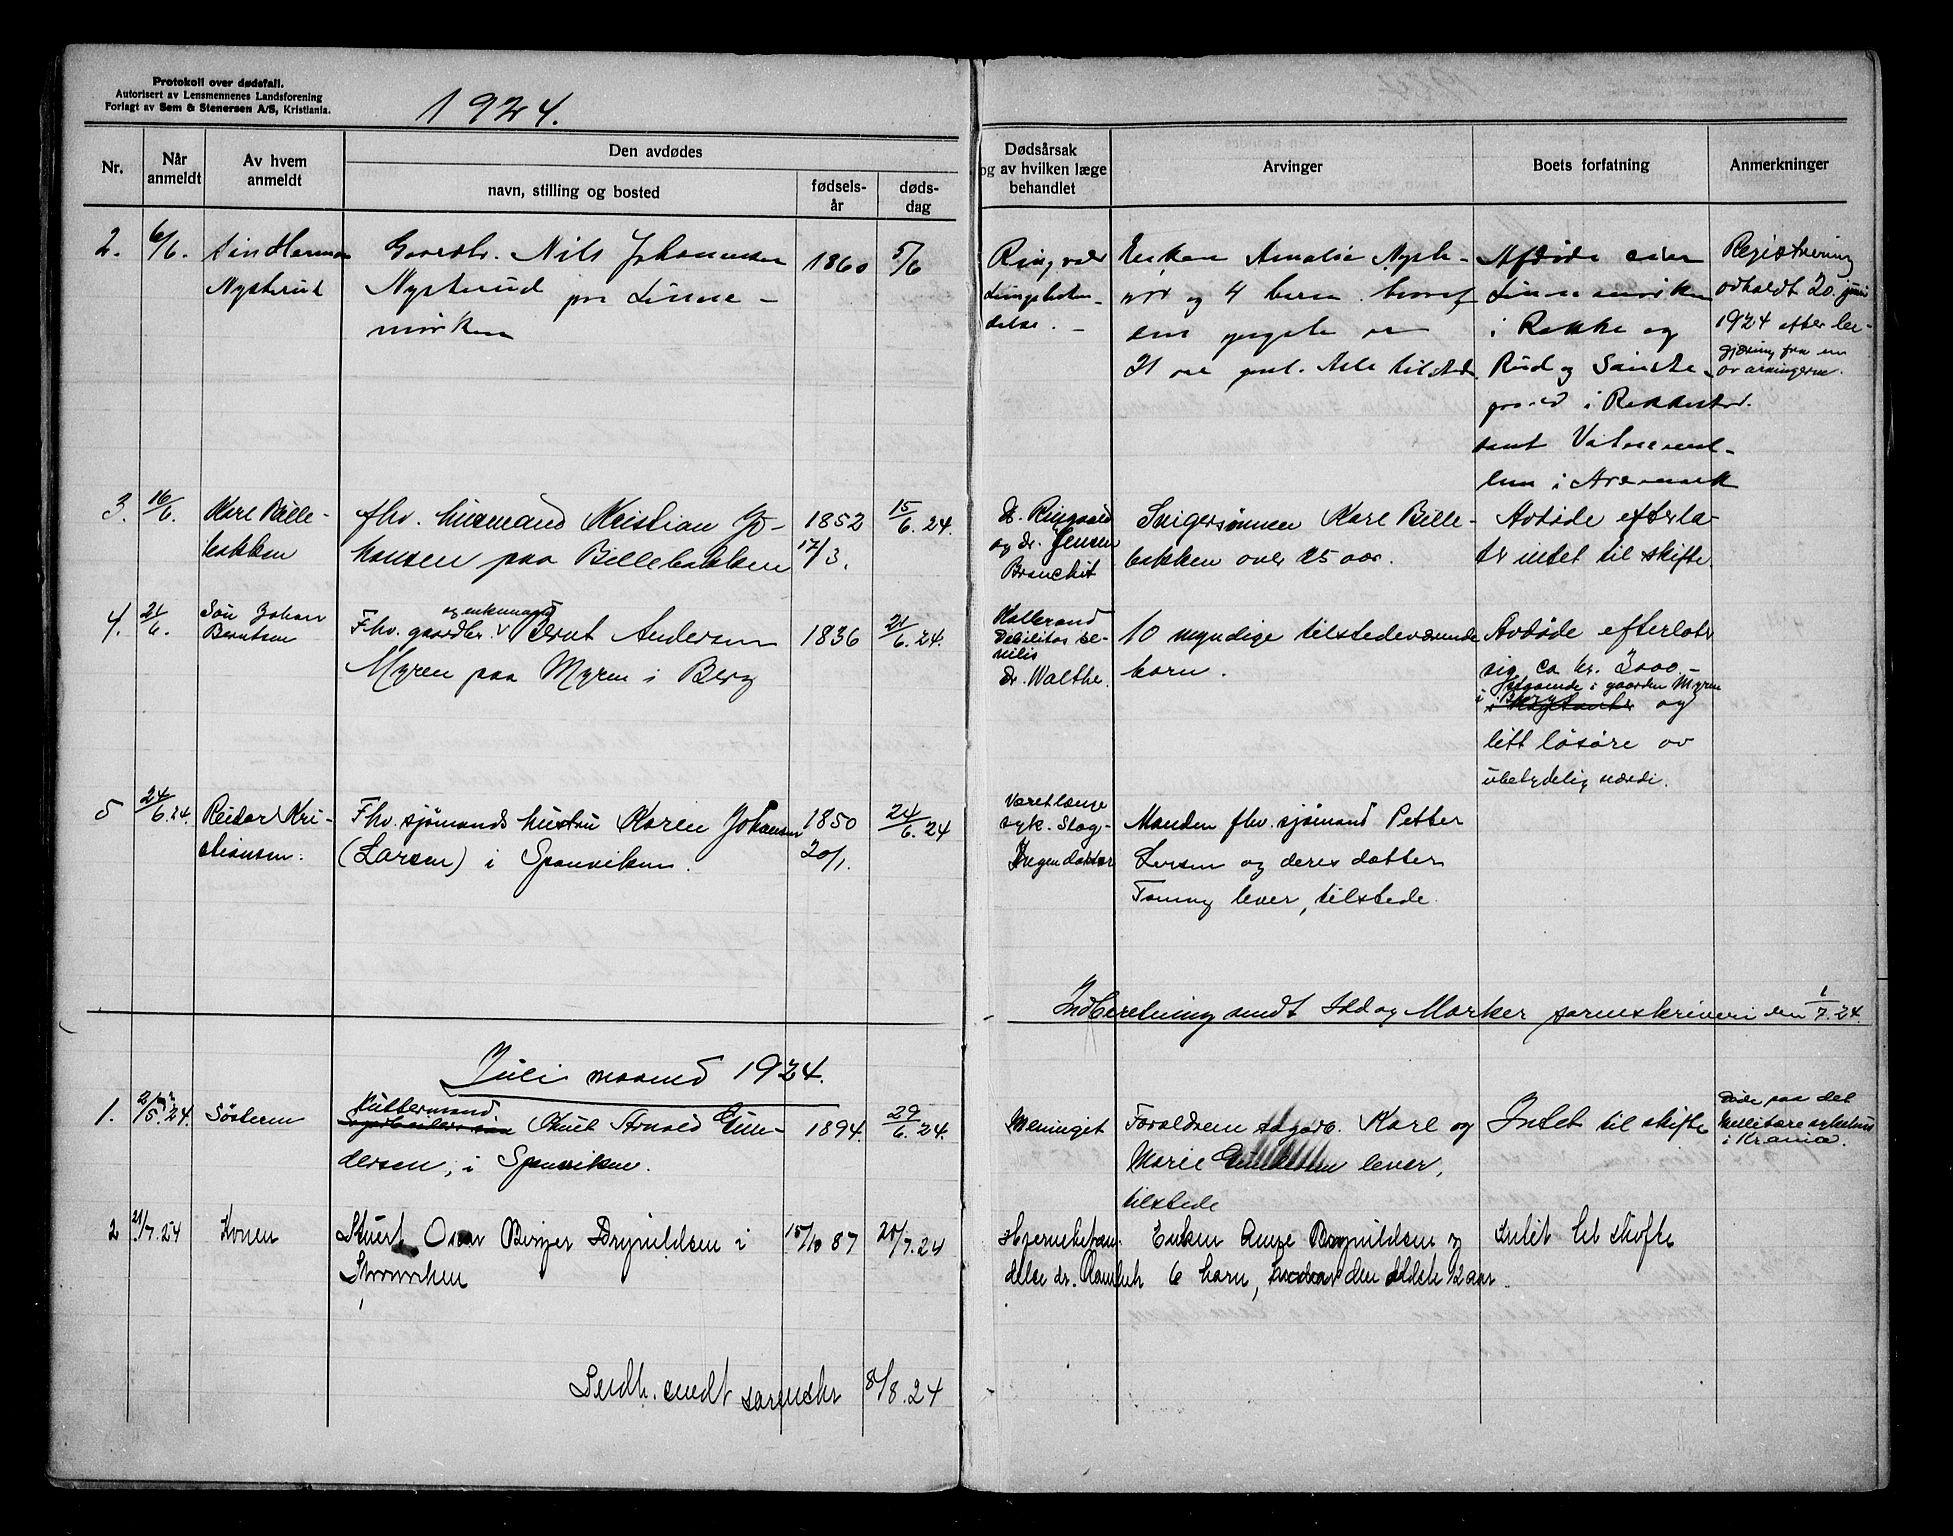 Protokoll over dødsfall.
Autorisert av Lensmennenes Landsforening
Forlagt av Sem & Stenersen A/S, Kristiania.
1924.
Nr.
Når anmeldt
Av hvem anmeldt
Den avdødes
navn, stilling og bosted
fødsels-
år
døds-
dag
Dødsårsak
og av hvilken læge
behandlet
Arvinger
Boets forfatning
Anmerkninger
2. 6/6.
Nysterud
Gaardbr. Nils Johannesen
Nysterud paa Linne-
mørken
1860 5/6
Lungebeten-
delse.
Enken Amalie Nyste-
rød og 4 barn hvoraf
den yngste er
21 aar gml. Alle tilstede.
Afdøde eier
Linnemørken
i Rakke og
Rud og Sandte-
graved i Rakkestad.
samt Vatne
i Aremark
Registrering
avholdt 20. juni
1924 efter be-
gjæring fra en
av arvingerne.
3. 16/6. Karl Bille-
bakken
fhv. husmand Kristian Jo-
hansen paa Billebakken
1852
17/3.
15/6.24.
Dr. Ringaard
og dr. Jensen
Bronchit
Svigersønnen Karl Bille-
bakken over 25 aar.
Avdøde efterla-
ter intet til skifte.
4. 21/6. Søn Johan
Berntsen
og enkemand
Fhv. gaardbr. v Bernt Andersen
Myren paa Myren i Berg
1836 21/6.24.
Debilitas se-
nilis
dr. Walthe.
10 myndige tilstedeværende
barn.
Avdøde efterlot
sig ca kr. 3000,-
i gaarden Myren
i Berg og
litt løsøre av
ubetydelig værdi.
5 24/6.24. Reidar Kri-
stiansen.
Fhv. sjømands hustru Karen Johansen
(Larsen) i Sponviken.
1850
20/1.
24/6.24
Været længe
syk. Slag-
Ingen doktor
Manden fhv. sjømand Petter
Larsen og deres datter
Fanny lever, tilstede.
Indberetning sendt Idd og Marker sorenskriveri den 1/7.24.
Juli maaned 1924.
1. 2/5.24. Søsteren
Kuttermand.
Knut Arnold Gun-
dersen, i Sponviken.
1894. 29/6.24.
Meninget
Foraldrene Karl og
Marie Gundersen lever,
tilstede
Intet til skifte
Døde paa det
Militære sykehus
i Krania.
2 21/7.24 Konen
Stuert Oscar Birger Brynildsen i
15/10 87 20/7.24
Hjernebetæn-
delse dr.
Enken Brynildsen og
6 barn, hvorav den ældste 12 aar.
Intet til skifte
Indb. sendt sorenskr 8/8.24